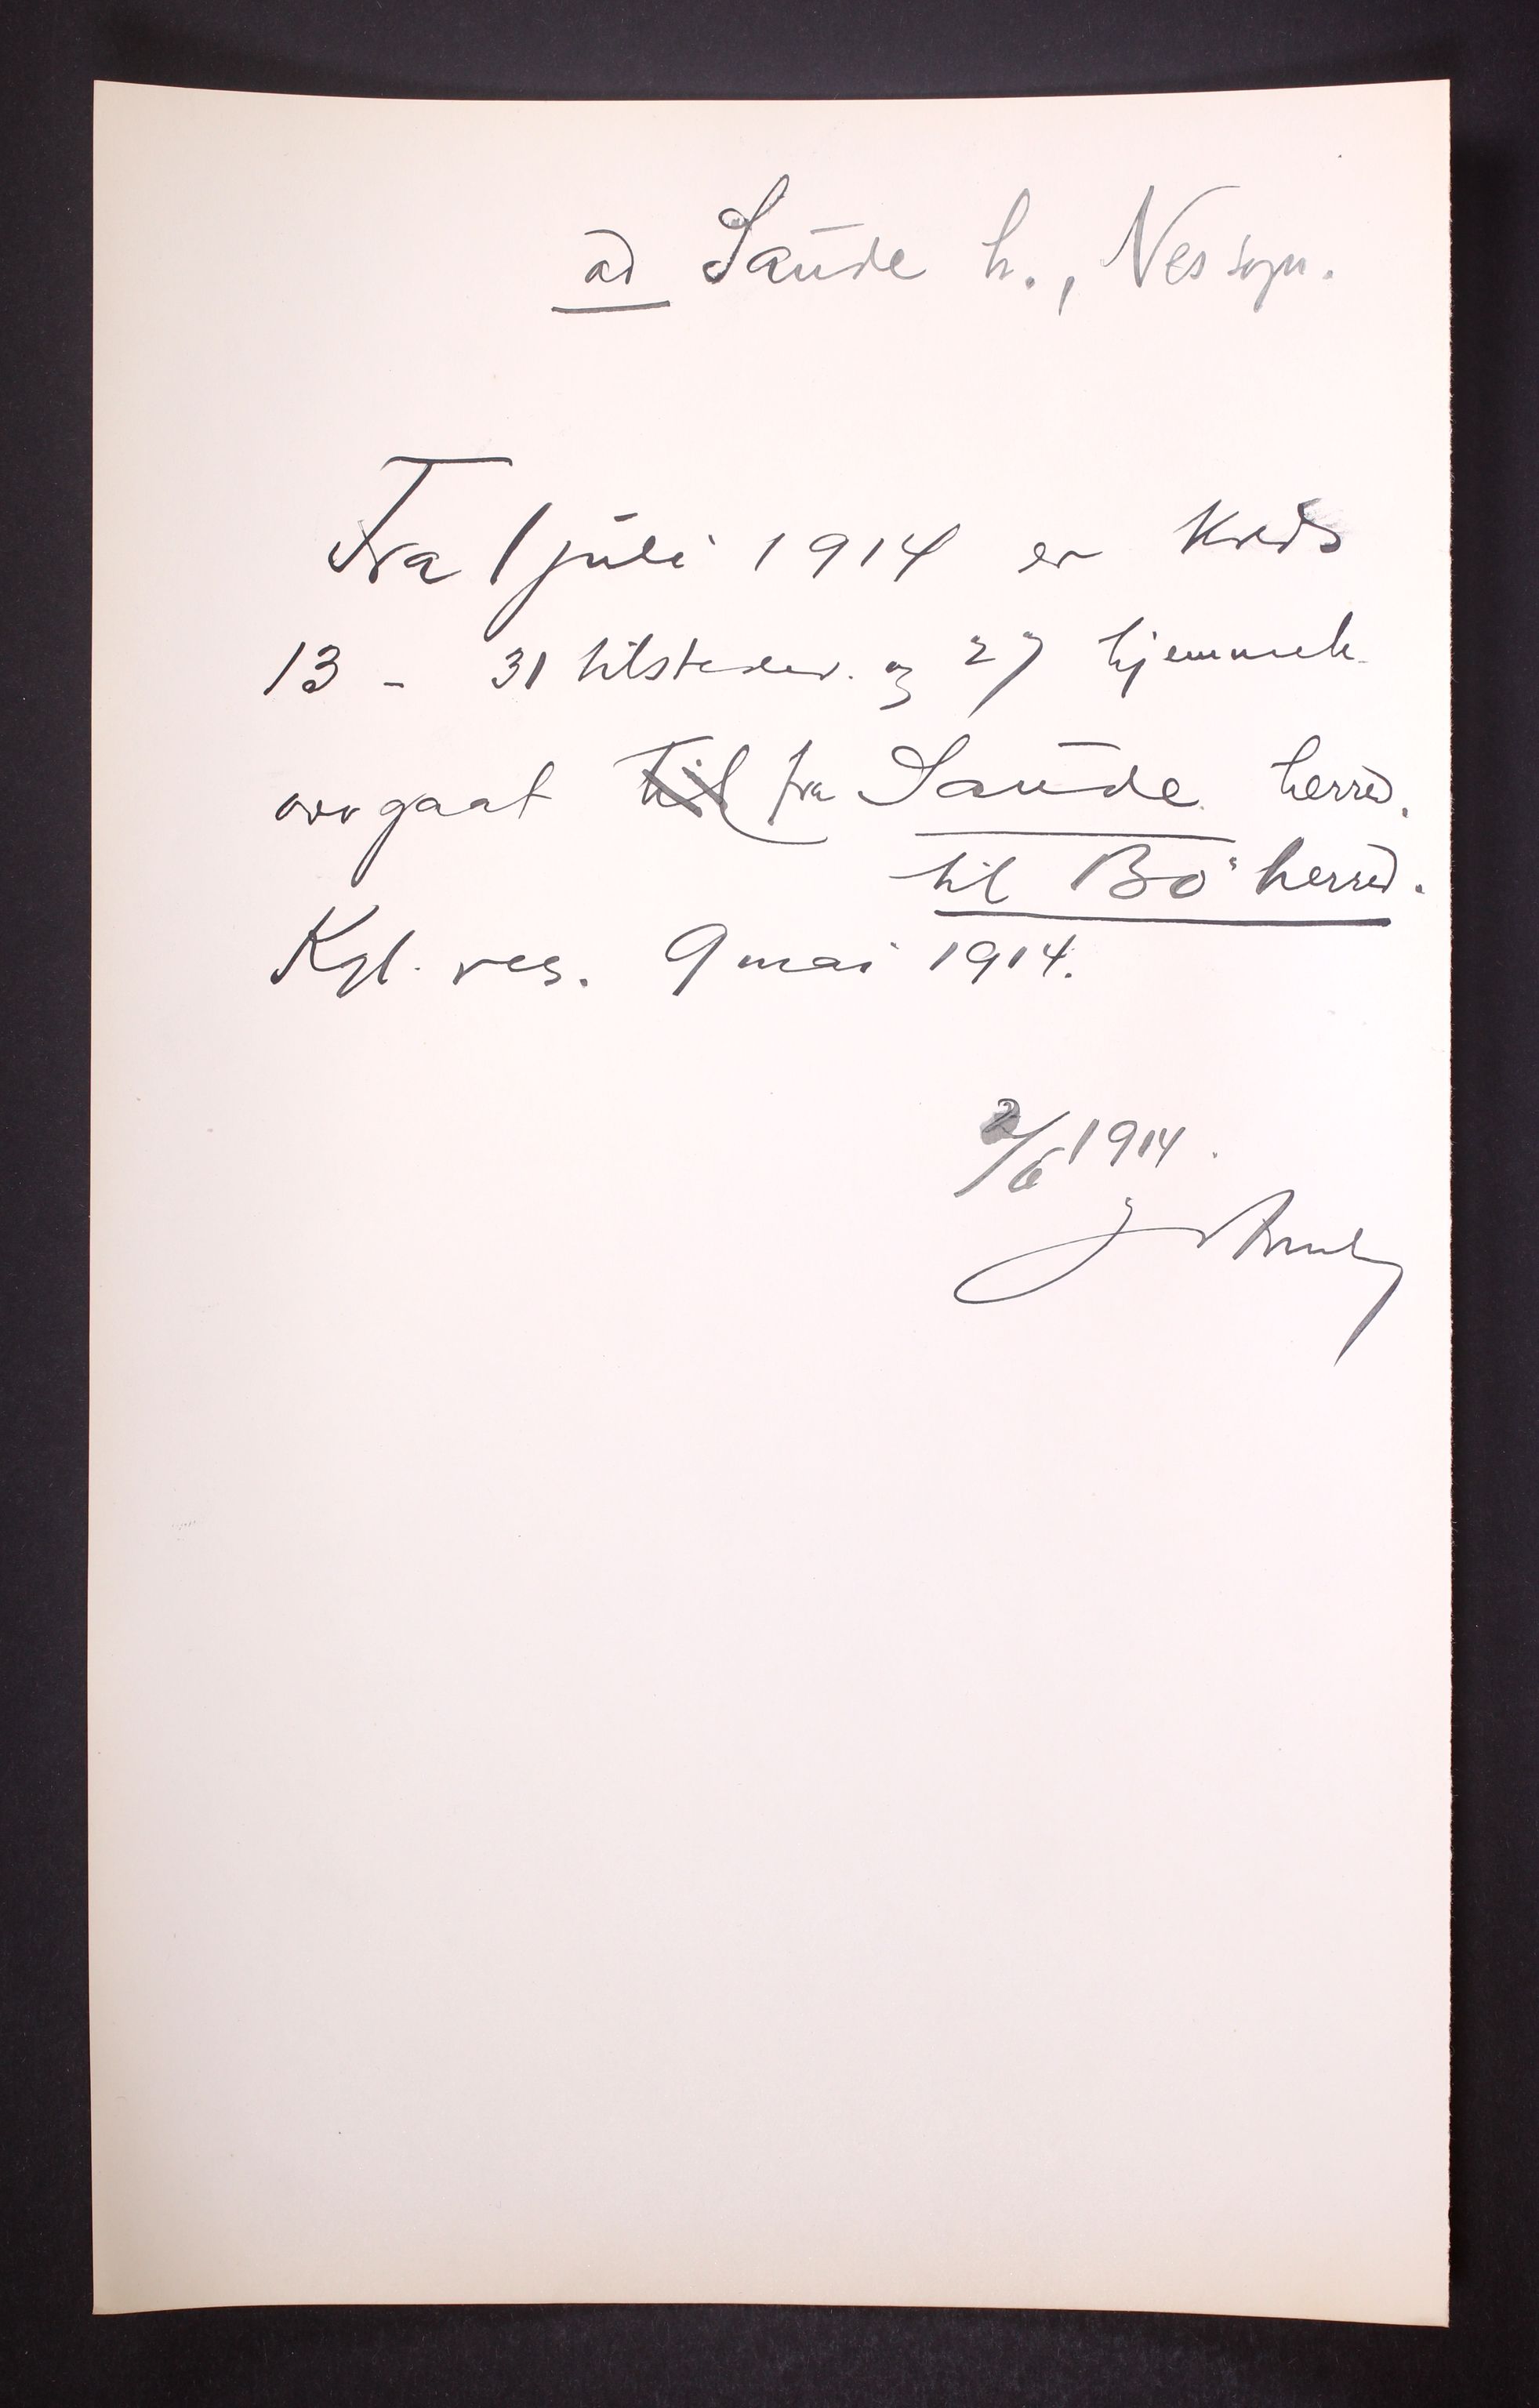 ad Saude h., Nes sogn.
Fra 1 juli 1914 er Kreds
13 - 31 tilstedev. og 27 hjemmeh.
overgaat til fra Saude herred.
til Bö herred.
Kgl. res. 9 mai 1914.
2/6 1914.